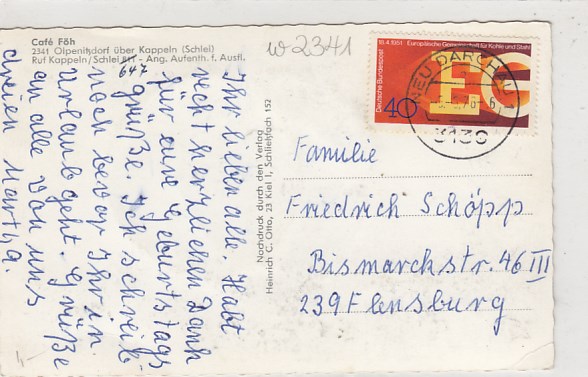 Café Föh
2341 Olpenitzdorf über Kappeln (Schlei)
Ruf Kappeln/Schlei 811 - Ang. Aufenth. f. Ausfl.
647
w 2341
Ihr lieben alle. Habt
recht herzlichen Dank
für eure Geburtstags
grüße. Ich schreib
noch bevor Ihr in
Urlaub geht. Grüße
an alle von uns
dreien
Nachdruck durch den Verlag
Heinrich C. Otto, 23 Kiel 1, Schließfach 152
18.4.1951 Europäische Gemeinschaft für Kohle und Stahl
Deutsche Bundespost
40
EGKS
NEU DARCHAU
3139
Familie
Friedrich Schöpp
Bismarckstr. 46 III
239 Flensburg